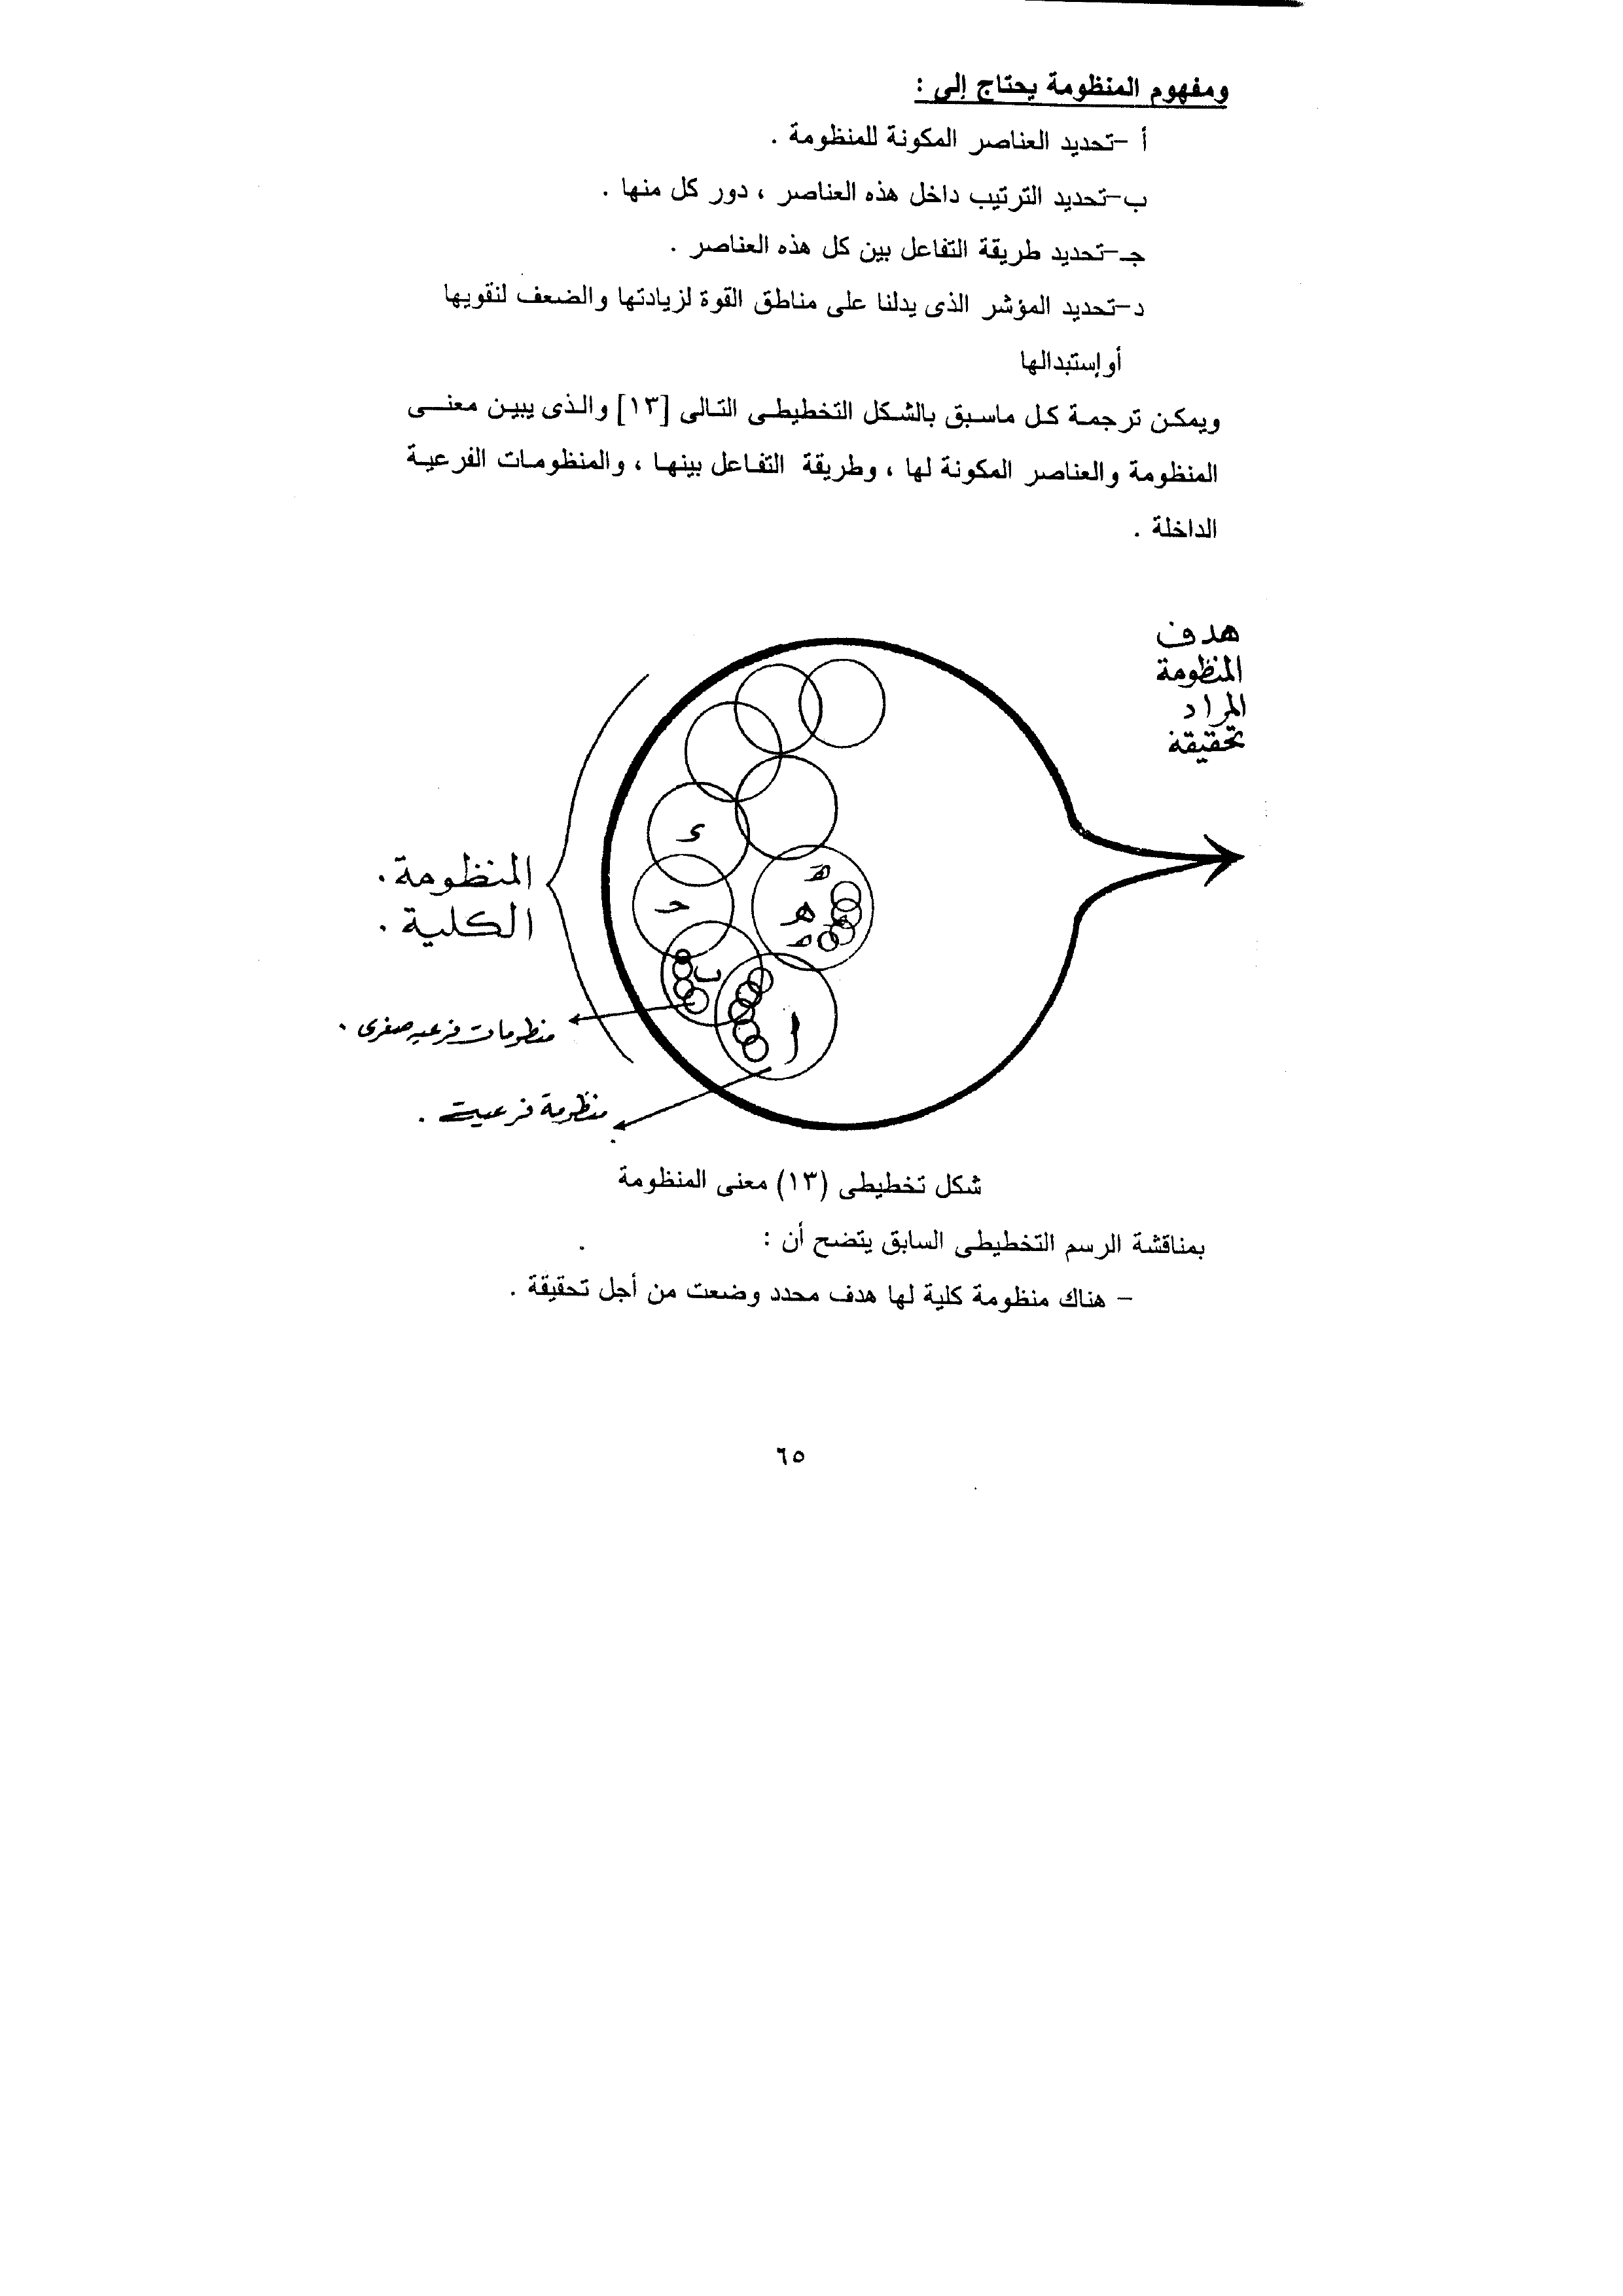 ومفهوم المنظومة يحتاج إلى :
أ -تحديد العناصر المكونة للمنظومة .
ب-تحديد الترتيب داخل هذه العناصر ، دور كل منها .
جـ-تحديد طريقة التفاعل بين كل هذه العناصر .
د-تحديد المؤشر الذى يدلنا على مناطق القوة لزيادتها والضعف لنقويها
أو إستبدالها
ويمكن ترجمة كل ماسبق بالشكل التخطيطى التالى [١٣] والذى يبين معنى
المنظومة والعناصر المكونة لها ، وطريقة التفاعل بينها ، والمنظومات الفرعية
الداخلة .
هدف
المنظومة
المراد
تحقيقة
ء
حـ
هـ
ب
أ
المنظومة .
الكلية .
منظومات فرعيه صغرى .
منظومة فرعية .
شكل تخطيطى (١٣) معنى المنظومة
بمناقشة الرسم التخطيطى السابق يتضح أن :
- هناك منظومة كلية لها هدف محدد وضعت من أجل تحقيقة .
٦٥